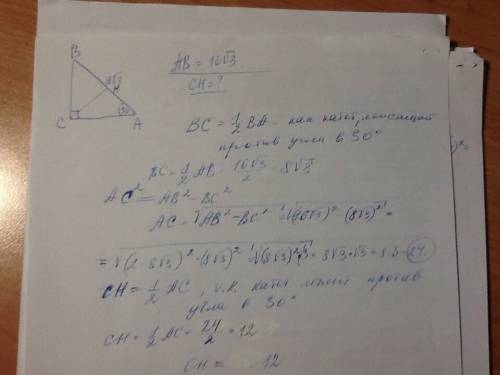 B
16√3
30
C
A
AB = 16√3
CH = ?
BC = 1/2 BA - как катет, лежащий
против угла в 30°
BC = 1/2 AB = 16√3/2 = 8√3
AC² = AB² - BC²
AC = √AB² - BC² = √(16√3)² - (8√3)² =
= √(2·8√3)² - (8√3)² = √(8√3)² · = 8√3 · √3 = 8·3 = 24
CH = 1/2 AC, т.к. катет лежит против
угла в 30°
CH = 1/2 AC = 24/2 = 12
CH = 12